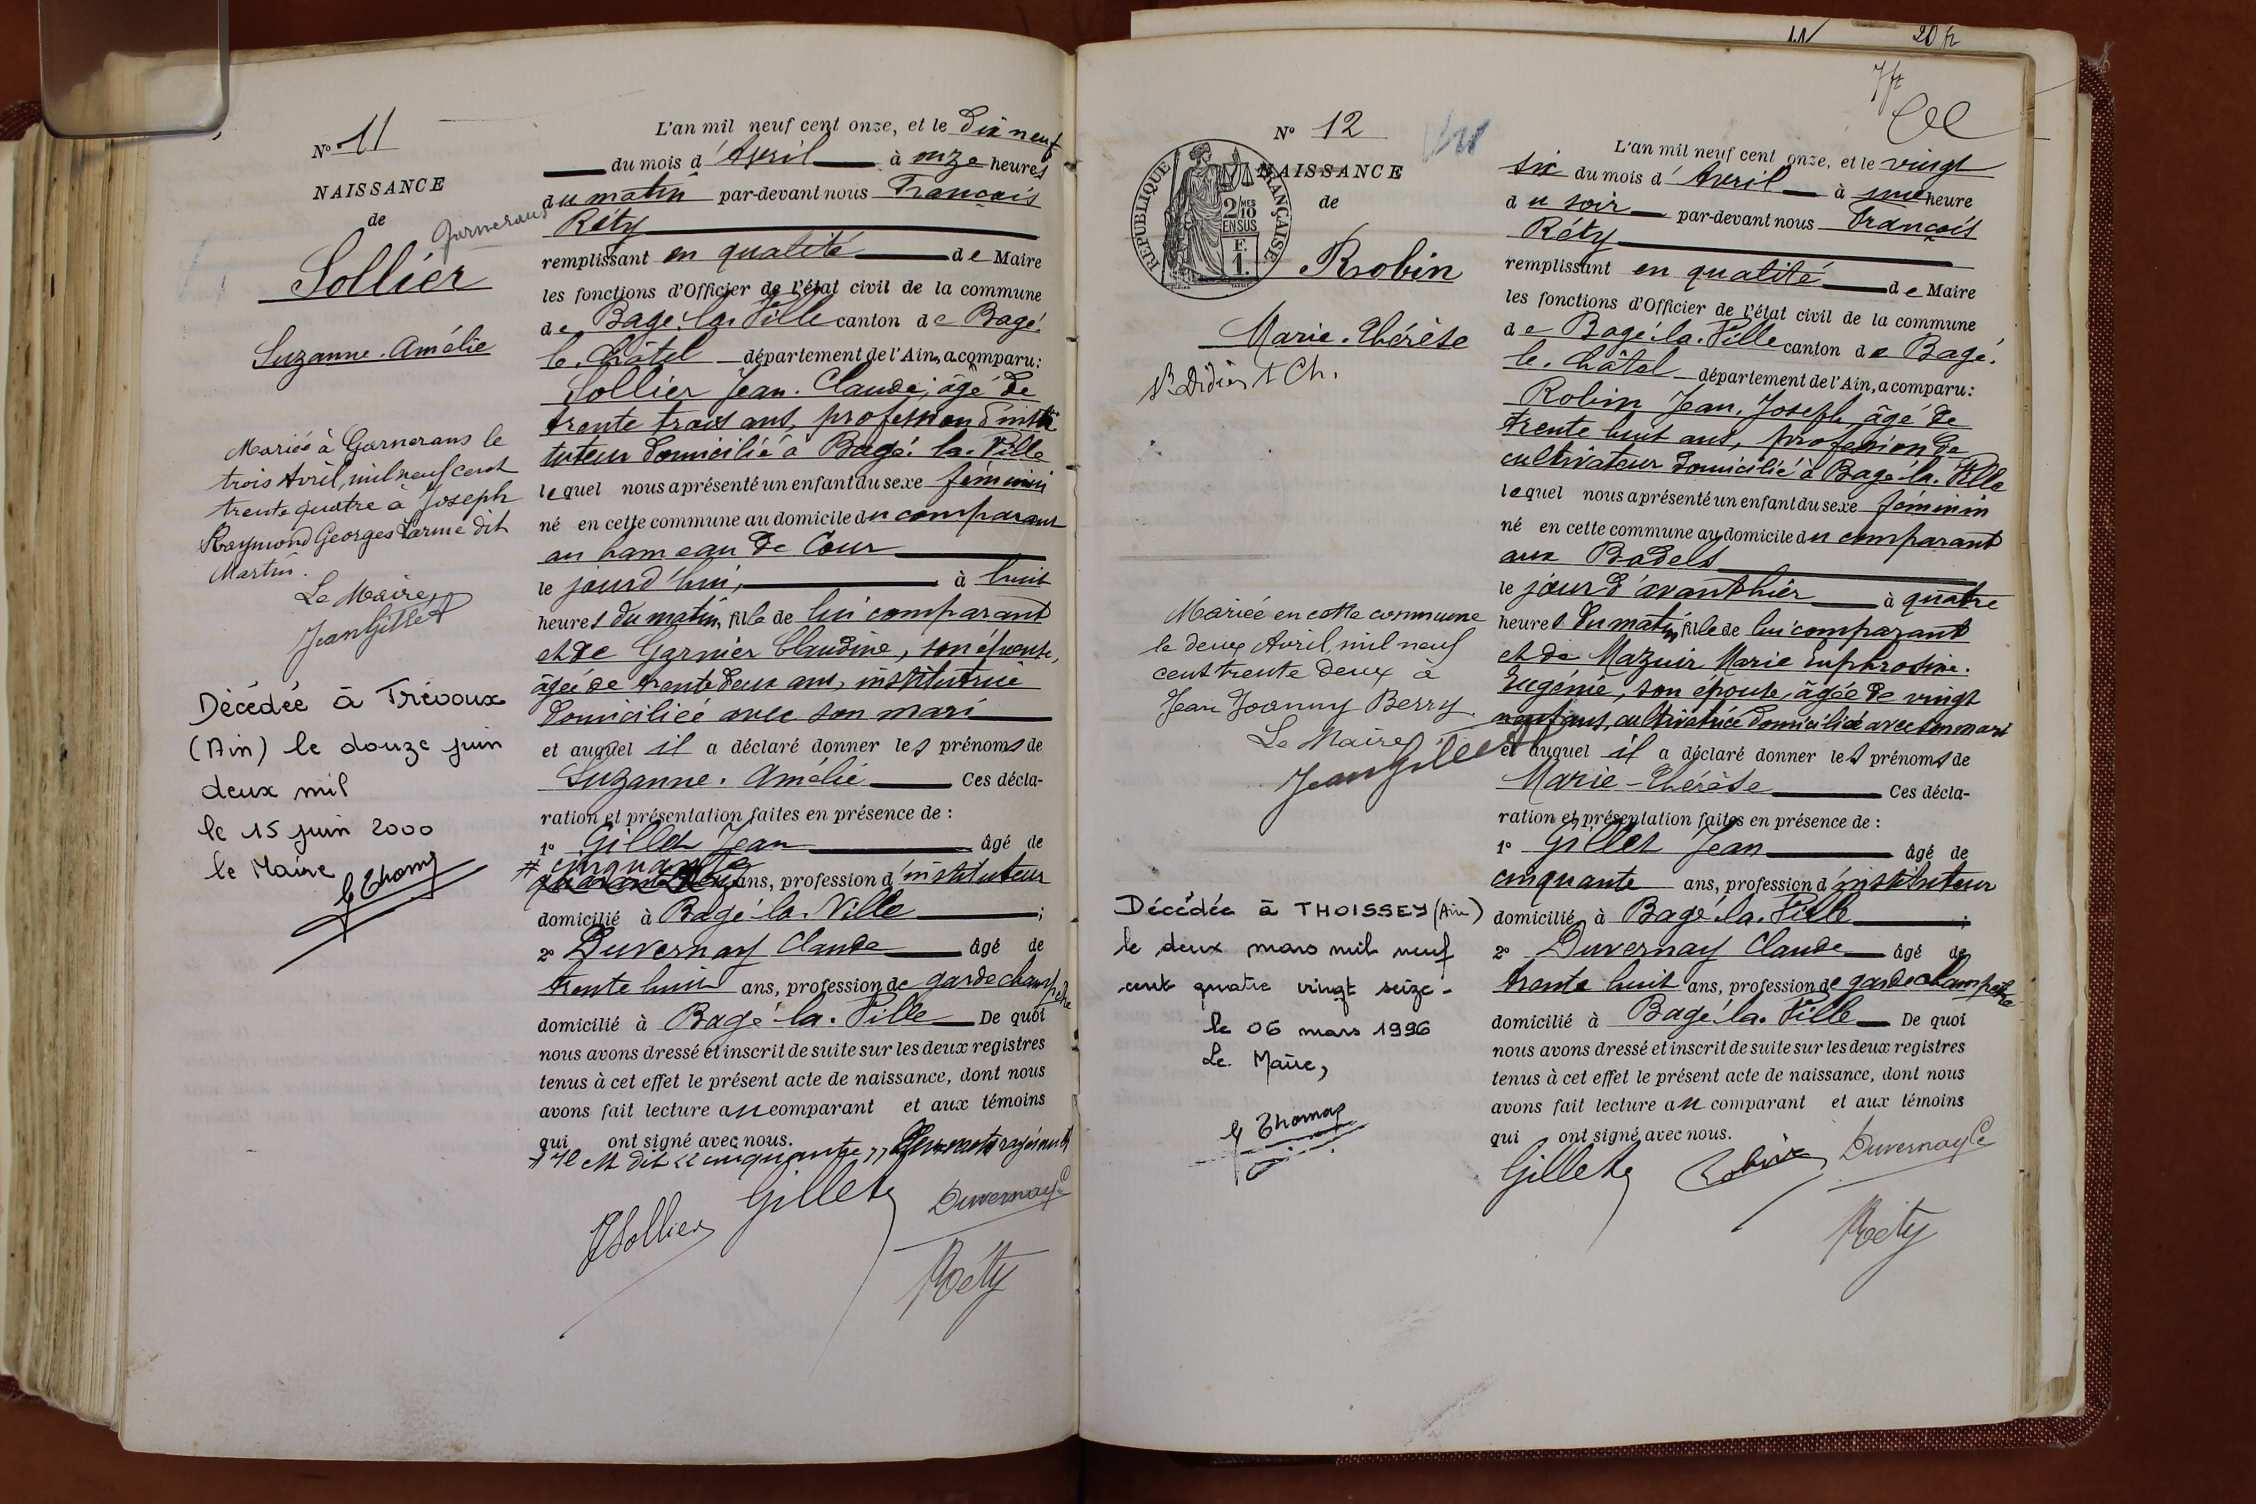 N° 11
NAISSANCE
de
Garnerans
Sollier
Suzanne. Amélie
Mariée à Garnerans le
trois Avril, mil neuf cent
trente quatre à Joseph
Raymond Georges Larme dit
Martin.
Le Maire,
Jean Gillet
Décédée à Trévoux
(Ain) le douze juin
deux mil
le 15 juin 2000
le Maire
G Thomas
L'an mil neuf cent onze, et le dix neuf
du mois d'Avril à onze heures
du matin par-devant nous François
Réty
remplissant en qualité de Maire
les fonctions d'Officier de l'état civil de la commune
de Bagé. la. Ville canton de Bagé.
le. Châtel département de l'Ain, a comparu:
Sollier Jean. Claude, âgé de
trente trois ans, profession d'insti
tuteur domicilié à Bagé. la. Ville
lequel nous a présenté un enfant du sexe féminin
né en cette commune au domicile du comparant
au hameau de Cour
le jourd'hui, à huit
heures du matin, fille de lui comparant
et de Garnier Claudine, son épouse,
âgée de trente deux ans, institutrice
domiciliée avec son mari
et auquel il a déclaré donner les prénoms de
Suzanne. Amélie Ces décla-
ration et présentation faites en présence de :
1° Gillet Jean âgé de
# cinquante
ans, profession d'instituteur
domicilié à Bagé. la. Ville ;
2° Duvernay Claude âgé de
trente huit ans, profession de garde champêtre
domicilié à Bagé. la. Ville De quoi
nous avons dressé et inscrit de suite sur les deux registres
tenus à cet effet le présent acte de naissance, dont nous
avons fait lecture au comparant et aux témoins
qui ont signé avec nous.
# Il est dit "cinquante" deux mots rayés nuls
JSollier Gillet Duvernay C
Réty
20 f
N° 12
NAISSANCE
de
RÉPUBLIQUE FRANÇAISE
2/10 MES
EN SUS
F.
1.
Robin
Marie. Thérèse
St Didier s Ch.
Mariée en cette commune
le deux Avril, mil neuf
cent trente deux à
Jean Joanny Berry.
Le Maire,
Jean Gillet
Décédée à THOISSEY (Ain)
le deux mars mil neuf
cent quatre vingt seize -
le 06 mars 1996
Le Maire,
G Thomas
L'an mil neuf cent onze, et le vingt
six du mois d'Avril à une heure
du soir par-devant nous François
Réty
remplissant en qualité de Maire
les fonctions d'Officier de l'état civil de la commune
de Bagé. la. Ville canton de Bagé.
le. Châtel département de l'Ain, a comparu:
Robin Jean. Joseph âgé de
trente huit ans, profession de
cultivateur domicilié à Bagé. la. Ville
lequel nous a présenté un enfant du sexe féminin
né en cette commune au domicile du comparant
aux Badels
le jour d'avant hier à quatre
heures du matin, fille de lui comparant
et de Mazuir Marie Euphrosine.
Eugénie, son épouse, âgée de vingt
neuf ans, cultivatrice domiciliée avec son mari
et auquel il a déclaré donner les prénoms de
Marie-Thérèse Ces décla-
ration et présentation faites en présence de :
1° Gillet Jean âgé de
cinquante ans, profession d'instituteur
domicilié à Bagé. la. Ville ;
2° Duvernay Claude âgé de
trente huit ans, profession de garde champêtre
domicilié à Bagé. la. Ville De quoi
nous avons dressé et inscrit de suite sur les deux registres
tenus à cet effet le présent acte de naissance, dont nous
avons fait lecture au comparant et aux témoins
qui ont signé avec nous.
Gillet Robin Duvernay C
Réty